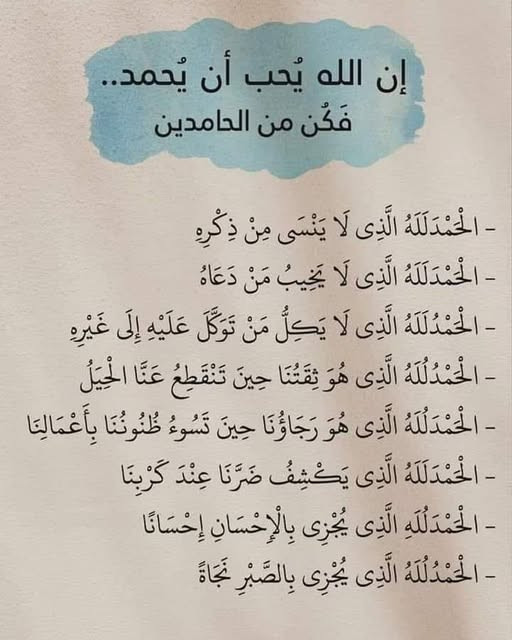 إن الله يُحب أن يُحمد..
فَكُن من الحامدين
- الْحَمْدَلَلَهُ الَّذِى لَا يَنْسَى مِنْ ذِكْرِهِ
- الْحَمْدَلَلَهُ الَّذِى لَا يَخِيبُ مَنْ دَعَاهُ
- الْحَمْدُلَلَهُ الَّذِى لَا يَكِلُّ مَنْ تَوَكَّلَ عَلَيْهِ إِلَى غَيْرِهِ
- الْحَمْدُلُلَهُ الَّذِى هُوَ ثِقَتُنَا حِينَ تَنْقَطِعُ عَنَّا الْحِيَلُ
- الْحَمْدُلَلَهُ الَّذِى هُوَ رَجَاؤُنَا حِينَ تَسُوءُ ظُنُونُنَا بِأَعْمَالِنَا
- الْحَمْدَلَلَهُ الَّذِى يَكْشِفُ ضَرَّنَا عِنْدَ كَرْبِنَا
- الْحَمْدُلَلِهِ الَّذِى يُجْزِى بِالْإِحْسَانِ إِحْسَانًا
- الْحَمْدُلُلَهُ الَّذِى يُجْزِى بِالصَّبْرِ نَجَاةً